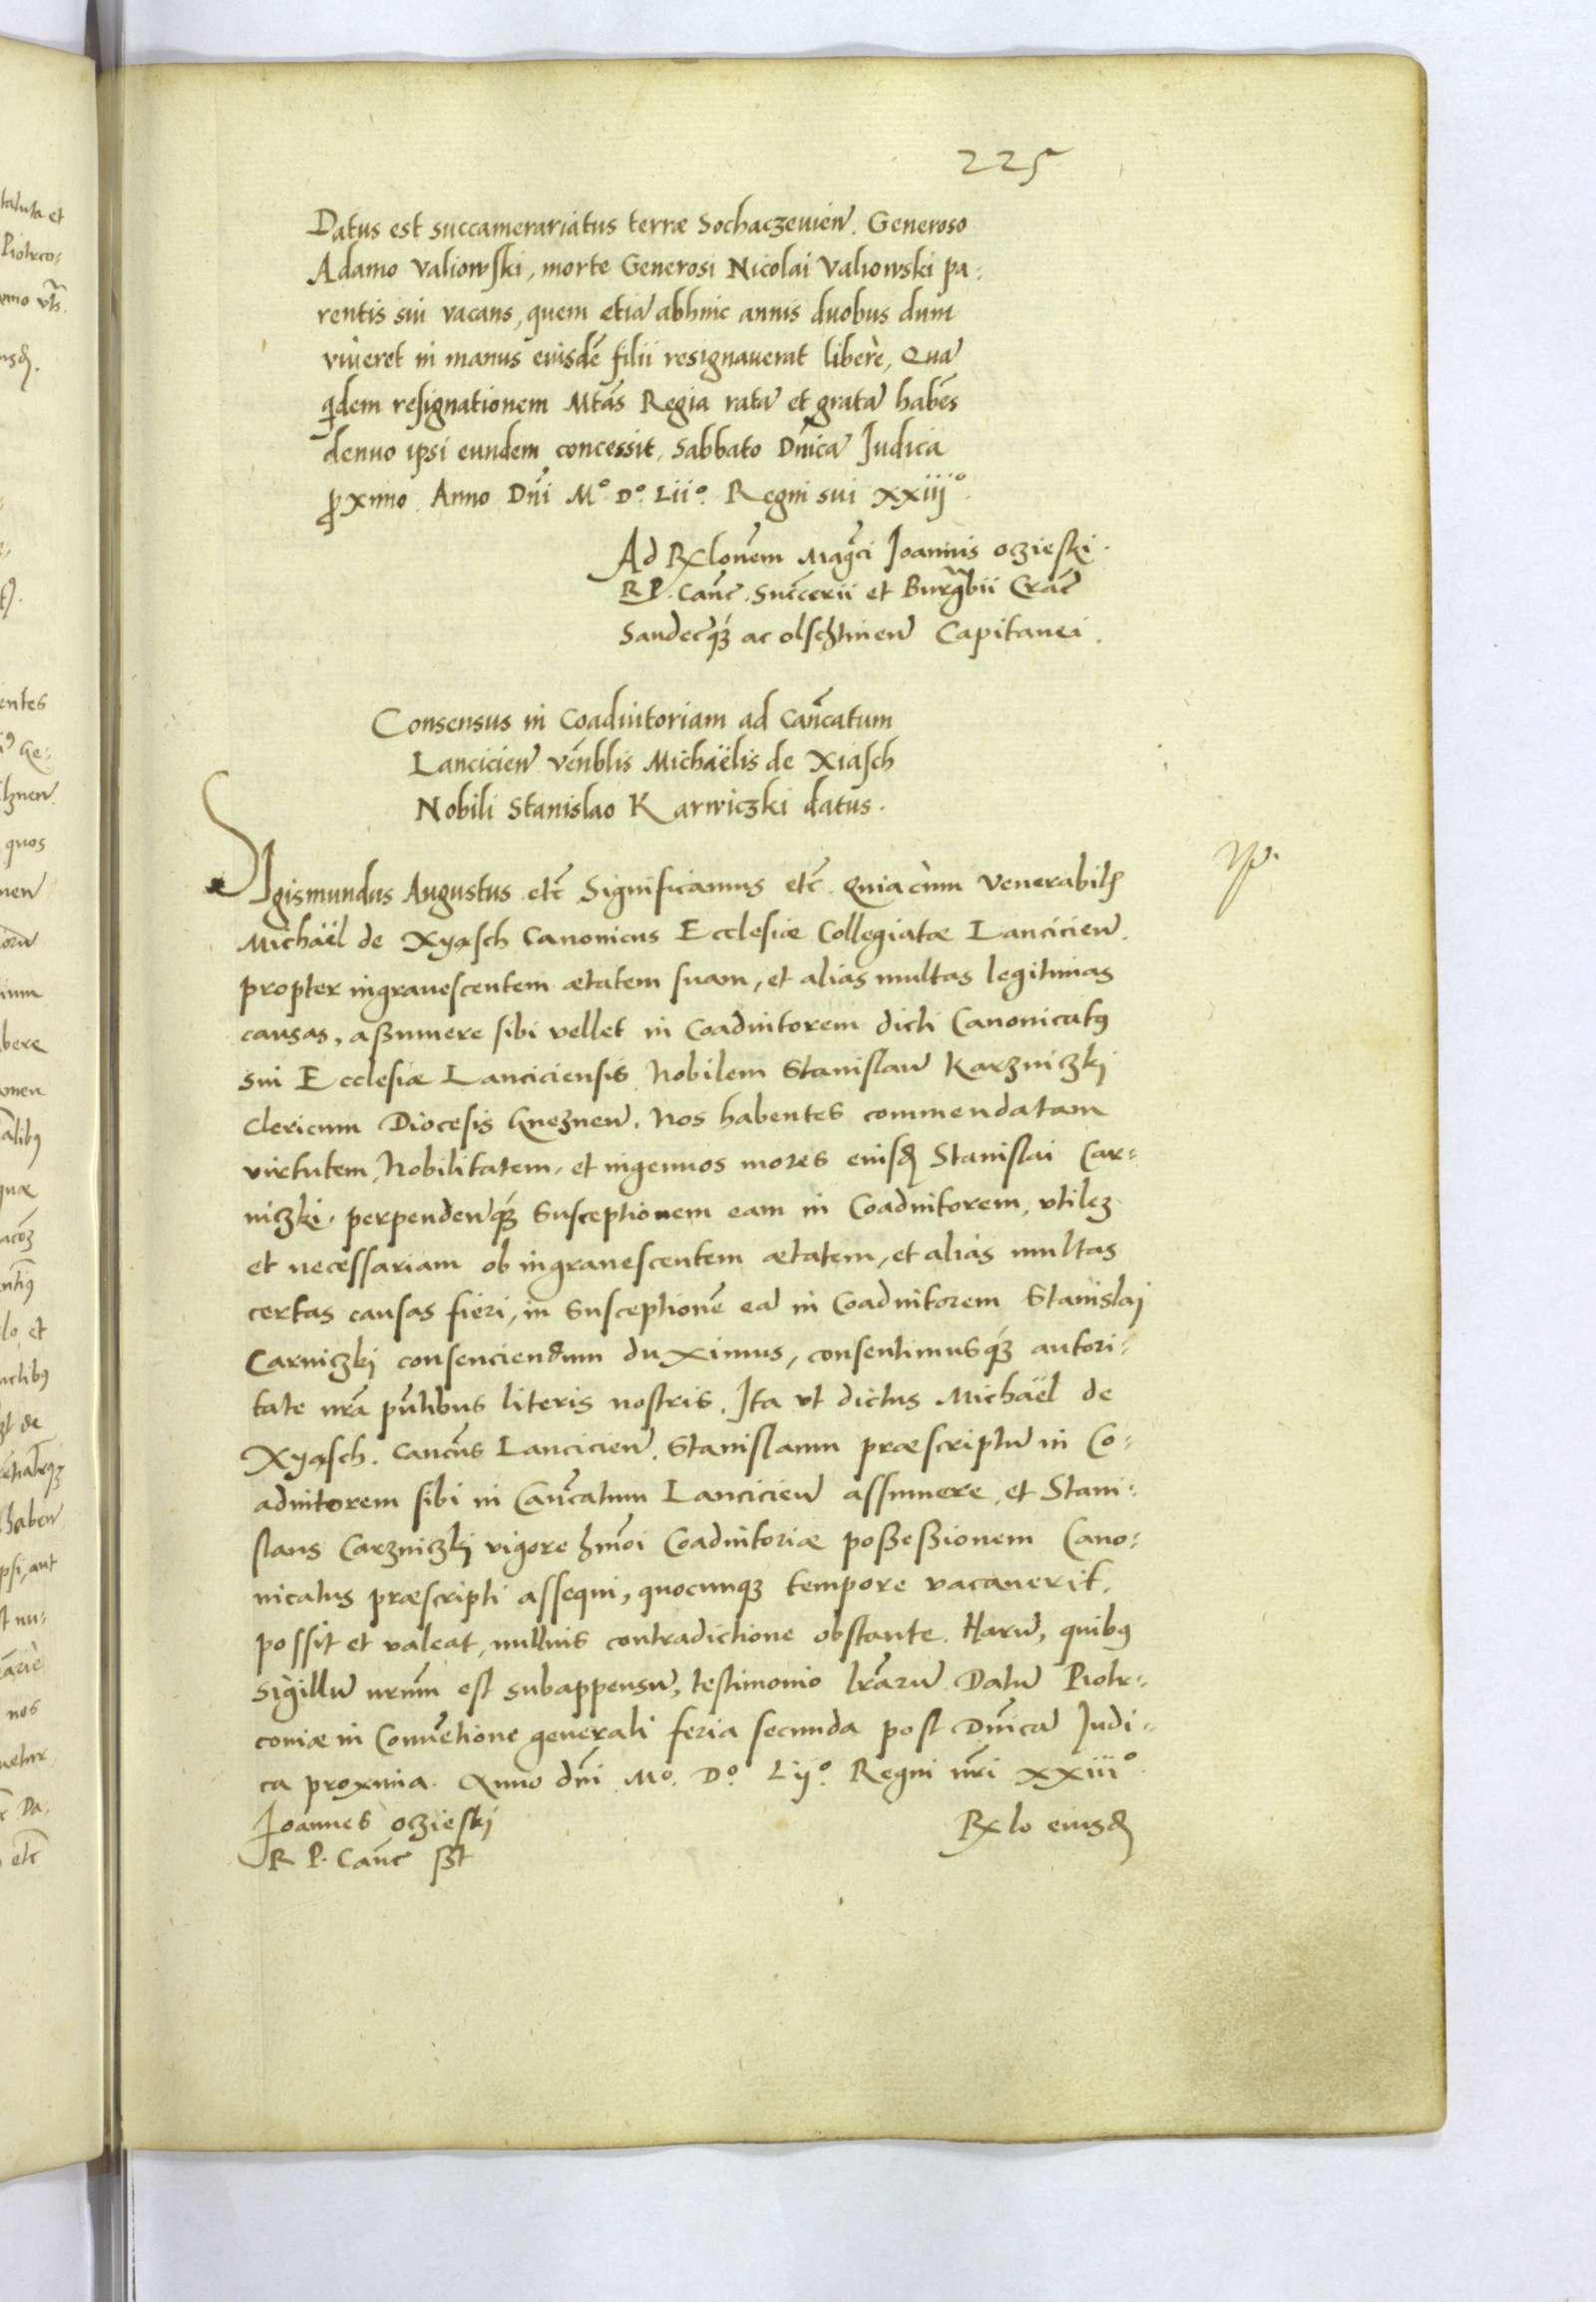 225
Datus est succamerariatus terræ Sochaczeuień. Generoso
Adamo Valiowski, morte Generosi Nicolai Valiowski pa:
rentis sui vacans, quem etiā abhinc annis duobus dum
viueret in manus eiusdē filii resignauerat liberè, Quā
qdem resignationem Mtās Regia ratā et gratā habēs
denuo ipsi eundem concessit, Sabbato Dnīca Judica
proximo. Anno Dnī M° D° Lii° Regni sui xxiij°
Ad Rxlonēm Magcī Joannis oczieski.
R P. Canc̄. Succcerii et Burgbii Crac̄
Sandecq́ꝫ ac olschtineń Capitanei.
Consensus in Coadiutoriam ad Canc̄atum
Lancicień vēnblis Michaëlis de Xiasch
Nobili Stanislao Karwiczki datus.
Sigismundus Augustus etc̄ Significamus etc̄ Quia cùm Venerabilꝭ
Michaël de Xyasch Canonicus Ecclesiæ Collegiatæ Lancicień.
propter ingrauescentem ætatem suam, et alias multas legitimas
causas, aßumere sibi vellet in Coadiutorem dicti Canonicatꝯ
sui Ecclesiæ Lanciciensis Nobilem Stanislaū Karzniczkj
Clericum Diocesis Gnezneń. Nos habentes commendatam
virtutem, Nobilitatem, et ingenuos mores eiusđ Stanislai Car:
niczki, perpendeńq́ꝫ Susceptionem eam in Coadiutorem, vtileꝫ
et necessariam ob ingrauescentem ætatem, et alias multas
certas causas fieri, in Susceptionē eā in Coadiutorem Stanislai
Carniczkj consenciendum duximus, consentimusq́ꝫ autori:
tate nrā pn̄tibus literis nostris. Ita vt dictus Michaël de
Xyasch. Cancūs Lancicień. Stanislaum præscriptū in Co:
adiutorem sibi in Canc̄atum Lancicień assumere, et Stani:
slaus Carzniczkj vigore hmōi Coadiutoriæ poßeßionem Cano:
nicatus præscripti assequi, quocunqꝫ tempore vacauerit,
possit et valeat, nullius contradictione obstante. Harū, quibꝯ
Sigillū nrūm est subappensū, testimonio lrārū. Datū Piotr:
coviæ in Conuētione generali feria secunda post Dnīcā Judi:
ca proxima. Anno dnī M° D° Lij° Regni nrī xxiii°
Joannes oczieskj
Rxlo eiusđ
R P. Canc̄ ßt